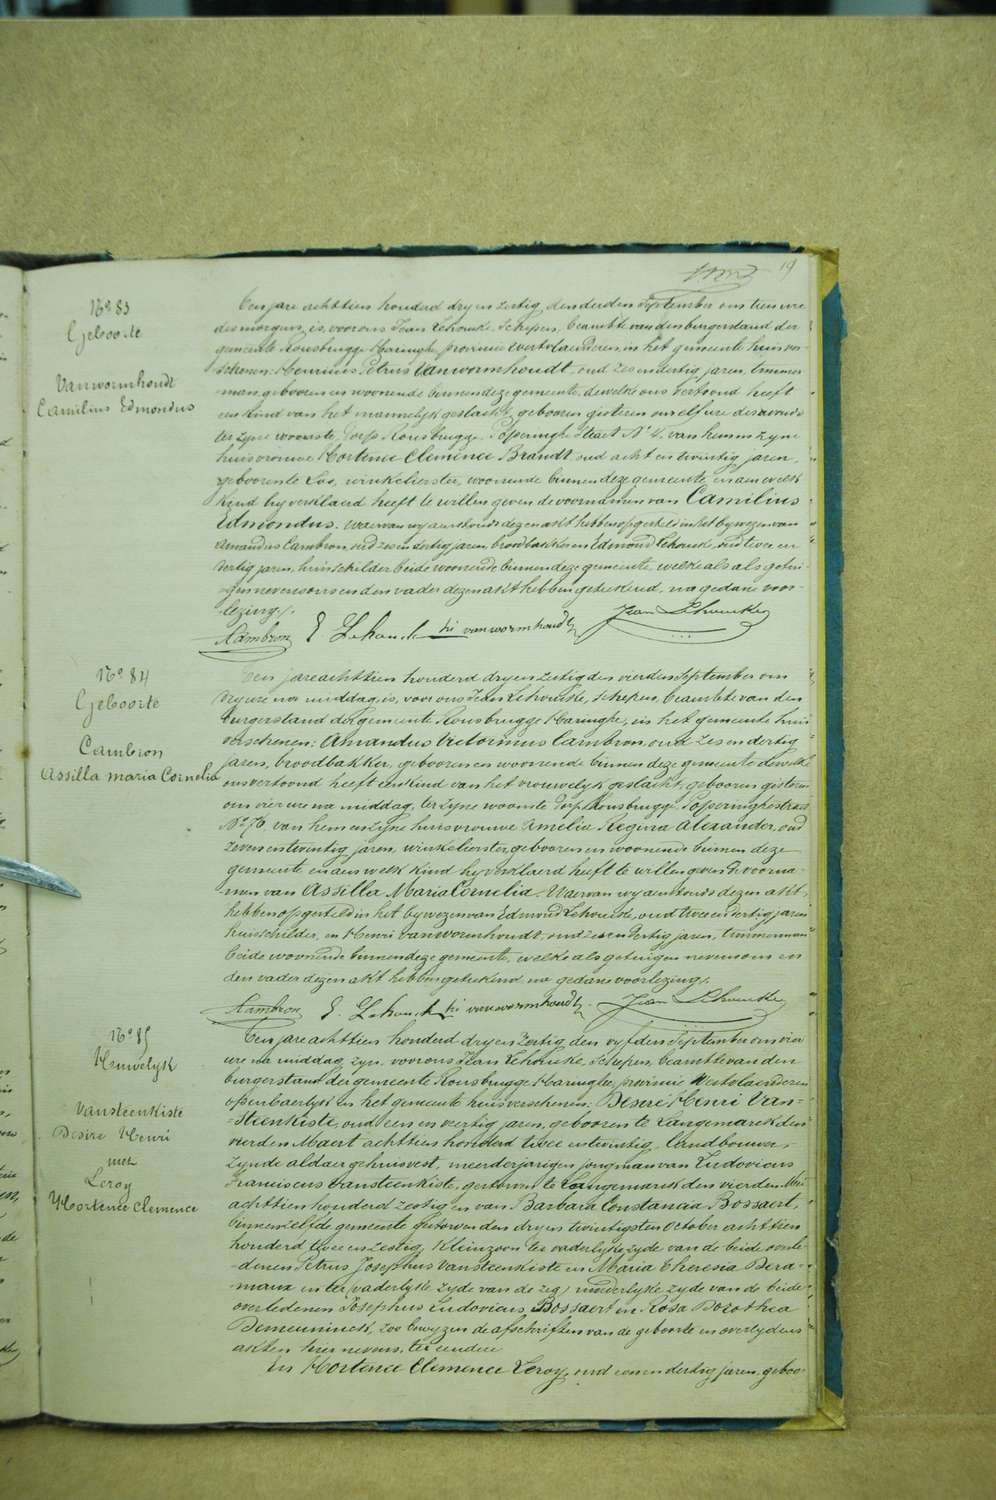 19
N° 83
Geboorte
Vanwormhoudt
Camilius Edmondus
Ten jare achttien honderd dry en zestig, den derden september om tien ure
des morgens, is, voor ons Jean Lehoucke, schepen, beambte van den burgerstand der
gemeente Rousbrugge Haringhe, provincie Westvlaenderen, in het gemeente huis ver-
schenen: Henricus Petrus Vanwormhoudt, oud zes en dertig jaren, timmer
man, gebooren en woonende binnen deze gemeente, dewelke ons vertoond heeft
een kind van het mannelyk geslacht, gebooren gisteren om elf ure des avonds
ter zyne woonste, dorp Rousbrugge, Poperinghe straet N° 4, van hem en zyne
huisvrouwe Hortence Clemence Brandt oud acht en twintig jaren,
geboren te Loo, winkelierster, woonende binnen deze gemeente, en aen welk
kind hy verklaerd heeft te willen geven de voornamen van Camilius
Edmondus. Waervan wy aenstonds dezen akt hebben opgesteld in het bywezen van
Amandus Cambron, oud zes en dertig jaren, broodbakker en Edmond Lehoucke, oud twee en
dertig jaren, huisschilder beide woonende binnen deze gemeente welke als als getui-
gen nevens ons en den vader dezen akt hebben geteekend, na gedane voor-
lezing./.
ACambron E Lehoucke hi vanwormhoudt Jean Lehoucke
N° 84
Geboorte
Cambron
Assilla Maria Cornelia
Ten jare achttien honderd dry en zestig den vierden september om
dry ure na middag, is, voor ons Jean Lehoucke, schepen, beambte van den
burgerstand der gemeente Rousbrugge Haringhe, in het gemeente huis
verschenen: Amandus Victorinus Cambron, oud zes en dertig
jaren, broodbakker, gebooren en woonende binnen deze gemeente dewelke
ons vertoond heeft een kind van het vrouwelyk geslacht, gebooren gisteren
om vier ure na middag, ter zyne woonste dorp Rousbrugge Poperinghestraet
N° 76 van hem en zyne huisvrouwe Amelia Regina Alexander, oud
zeven en twintig jaren, winkelierster, gebooren en woonende binnen deze
gemeente en aen welk kind hy verklaerd heeft te willen geven de voorna-
men van Assilla Maria Cornelia. Waervan wy aenstonds dezen akt
hebben opgesteld in het bywezen van Edmond Lehoucke, oud twee en dertig jaren
huisschilder, en Henri Vanwormhoudt, oud zes en dertig jaren, timmerman
beide woonende binnen deze gemeente, welke als getuigen nevens ons en
den vader dezen akt hebben geteekend na gedane voorlezing./.
ACambron E. Lehoucke hi vanwormhoudt Jean Lehoucke
N° 85
Huwelyk
Vansteenkiste
Desire Henri
met
Leroy
Hortence Clemence
Ten jare achttien honderd dry en zestig, den vyfden september om vier
ure na middag zyn, voor ons Jean Lehoucke, schepen, beambte van den
burgerstand der gemeente Rousbrugge Haringhe, provincie Westvlaenderen
openbaerlyk in het gemeente huis verschenen: Desire Henri Van=
=steenkiste, oud een en veertig jaren, gebooren te Langemarck den
vierden Maert achttien honderd twee en twintig, landbouwer,
zynde aldaer gehuisvest, meerderjarigen jongman van Ludovicus
Franciscus Vansteenkiste, gestorven te Langemarck den vierden Mei
achttien honderd zestig en van Barbara Constancia Bossaert,
binnen zelfde gemeente gestorven den dry en twintigsten October achttien
honderd twee en zestig, kleinzoon ter vaderlyke zyde van de beide overle-
denen Petrus Josephus Vansteenkiste en Maria Theresia Dera-
maux en ter vaderlyke zyde van de zeg moederlyke zyde van de beide
overledenen Josephus Ludovicus Bossaert en Rosa Dorothea
Demeuninck, zoo bewyzen de afschriften van de geboorte en overlydens
akten hier nevens, ter eendere
En Hortence Clemence Leroy, oud een en dertig jaren, geboo-